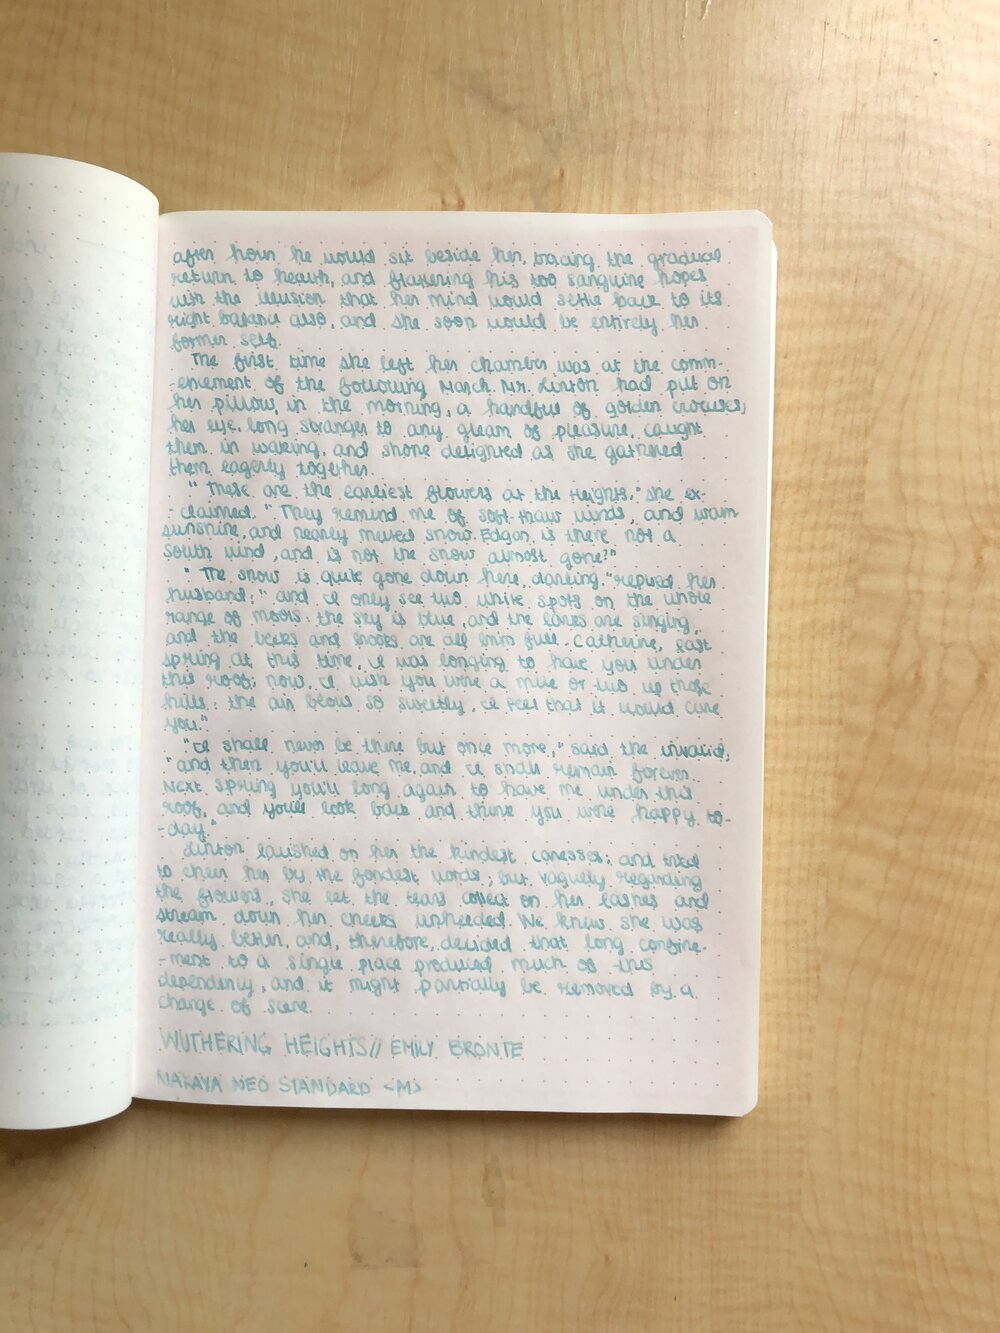 after hour he would sit beside her, tracing the gradual
return to health, and flattering his too sanguine hopes
with the illusion that her mind would settle back to its
right balance also, and she soon would be entirely her
former self.
The first time she left her chamber was at the comm-
-encement of the following March. Mr. Linton had put on
her pillow, in the morning, a handful of golden crocuses;
her eye, long stranger to any gleam of pleasure, caught
them in waking, and shone delighted as she gathered
them eagerly together.
"These are the earliest flowers at the Heights," she ex-
-claimed. "They remind me of soft thaw winds, and warm
sunshine, and nearly melted snow. Edgar, is there not a
south wind, and is not the snow almost gone?"
"The snow is quite gone down here, darling," replied her
husband; "and I only see two white spots on the whole
range of moors: the sky is blue, and the larks are singing,
and the becks and brooks are all brim full. Catherine, last
spring at this time, I was longing to have you under
this roof; now, I wish you were a mile or two up those
hills: the air blows so sweetly, I feel that it would cure
you."
"I shall never be there but once more," said the invalid;
"and then you'll leave me, and I shall remain forever.
Next spring you'll long again to have me under this
roof, and you'll look back and think you were happy to-
-day."
Linton lavished on her the kindest caresses; and tried
to cheer her by the fondest words; but vaguely regarding
the flowers, she let the tears collect on her lashes and
stream down her cheeks unheeded. We knew she was
really better, and, therefore, decided that long confine-
-ment to a single place produced much of this
dependency, and it might partially be removed by a
change of scene.
WUTHERING HEIGHTS // EMILY BRONTE
NAKAYA NEO STANDARD <M>